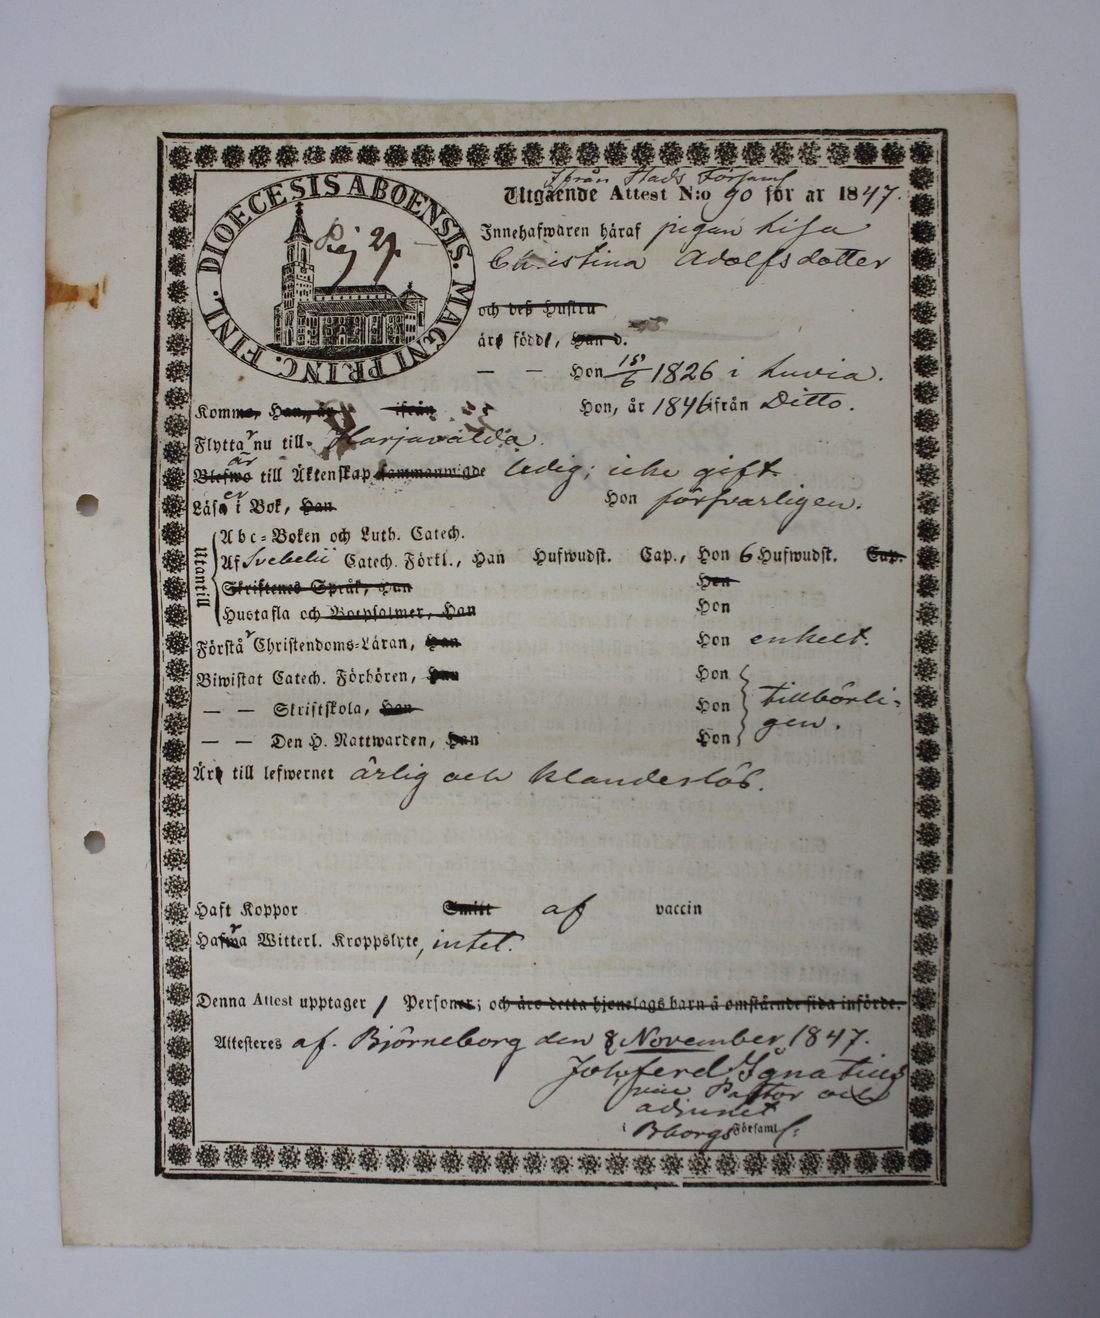 DIOECESIS ABOENSIS. MAGNI PRINC. FINL.
ifrån Stads Församl
Utgående Attest N:o 90 för år 1847.
Innehafwaren häraf pigan Lisa
Christina Adolfsdotter
och deß Hustru
äro född, Han d.
— — Hon 15/6 1826 i Luvia.
Komme, Han, år ifrån Hon, år 1846 ifrån Ditto.
Flyttar nu till Harjavalda.
är
Blefwo till Äktenskap sammanwigde ledig; icke gift
Läser i Bok, Han Hon försvarligen.
Utantill
Abc-Boken och Luth. Catech.
Af Svebelii Catech. Förkl., Han Hufwudst. Cap., Hon 6 Hufwudst. Cap.
Skriftenes Språk, Han Hon
Hustafla och Botpsalmer, Han Hon
Förstår Christendoms-Läran, Han Hon enkelt.
Biwistat Catech. Förhören, Han Hon
— — Skriftskola, Han Hon tillbörli-
gen.
— — Den H. Nattwarden, Han Hon
Äro till lefwernet ärlig och klanderlös.
Haft Koppor Smitt af vaccin
Hafwa Witterl. Kroppslyte, intet.
Denna Attest upptager 1 Personer; och äro detta hjonelags barn å omstående sida införde.
Attesteres af. Björneborg den 8 November 1847.
Joh. ferd. Ignatius
vice Pastor och
adjunct
i Bborgs Församl.